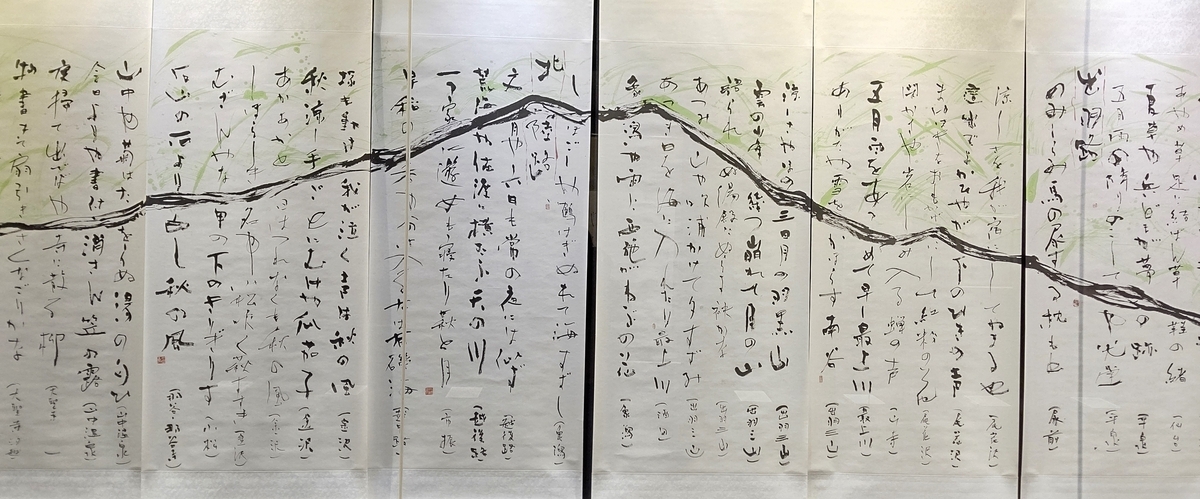 あやめ草足に結ばん草鞋の緒 (仙台)
夏草や兵どもが夢の跡 (平泉)
五月雨の降りのこしてや光堂 (平泉)
のみしらみ馬の尿する枕もと (尿前)
出羽路
涼しさを我が宿にしてねまる也 (尾花沢)
這出でよかひやが下のひきの声 (尾花沢)
まゆはきを俤にして紅粉の花 (尾花沢)
閑かさや岩にしみ入る蝉の声 (山寺)
五月雨をあつめて早し最上川 (最上川)
ありがたや雪をかほらす南谷 (出羽三山)
涼しさやほの三日月の羽黒山 (出羽三山)
雲の峰幾つ崩れて月の山 (出羽三山)
語られぬ湯殿にぬらす袂かな (出羽三山)
あつみ山や吹浦かけて夕すずみ
あつき日を海に入れたり最上川 (酒田)
象潟や雨に西施がねぶの花 (象潟)
汐ごしや鶴はぎぬれて海すずし (象潟)
北陸路
文月や六日も常の夜には似ず (越後路)
荒海や佐渡に横たふ天の川 (越後路)
一つ家に遊女も寝たり萩と月 (市振)
早稲の香や分け入る右は有磯海
塚も動け我が泣く声は秋の風 (金沢)
秋涼し手ごとにむけや瓜茄子 (金沢)
あかあかと日はつれなくも秋の風 (金沢)
しほらしき名や小松吹く萩すすき
むざんやな甲の下のきりぎりす (小松)
石山の石より白し秋の風 (那谷寺)
山中や菊はたをらぬ湯の匂ひ (山中温泉)
今日よりや書付消さん笠の露 (山中温泉)
庭掃て出ばや寺に散る柳
物書て扇引さくなごりかな